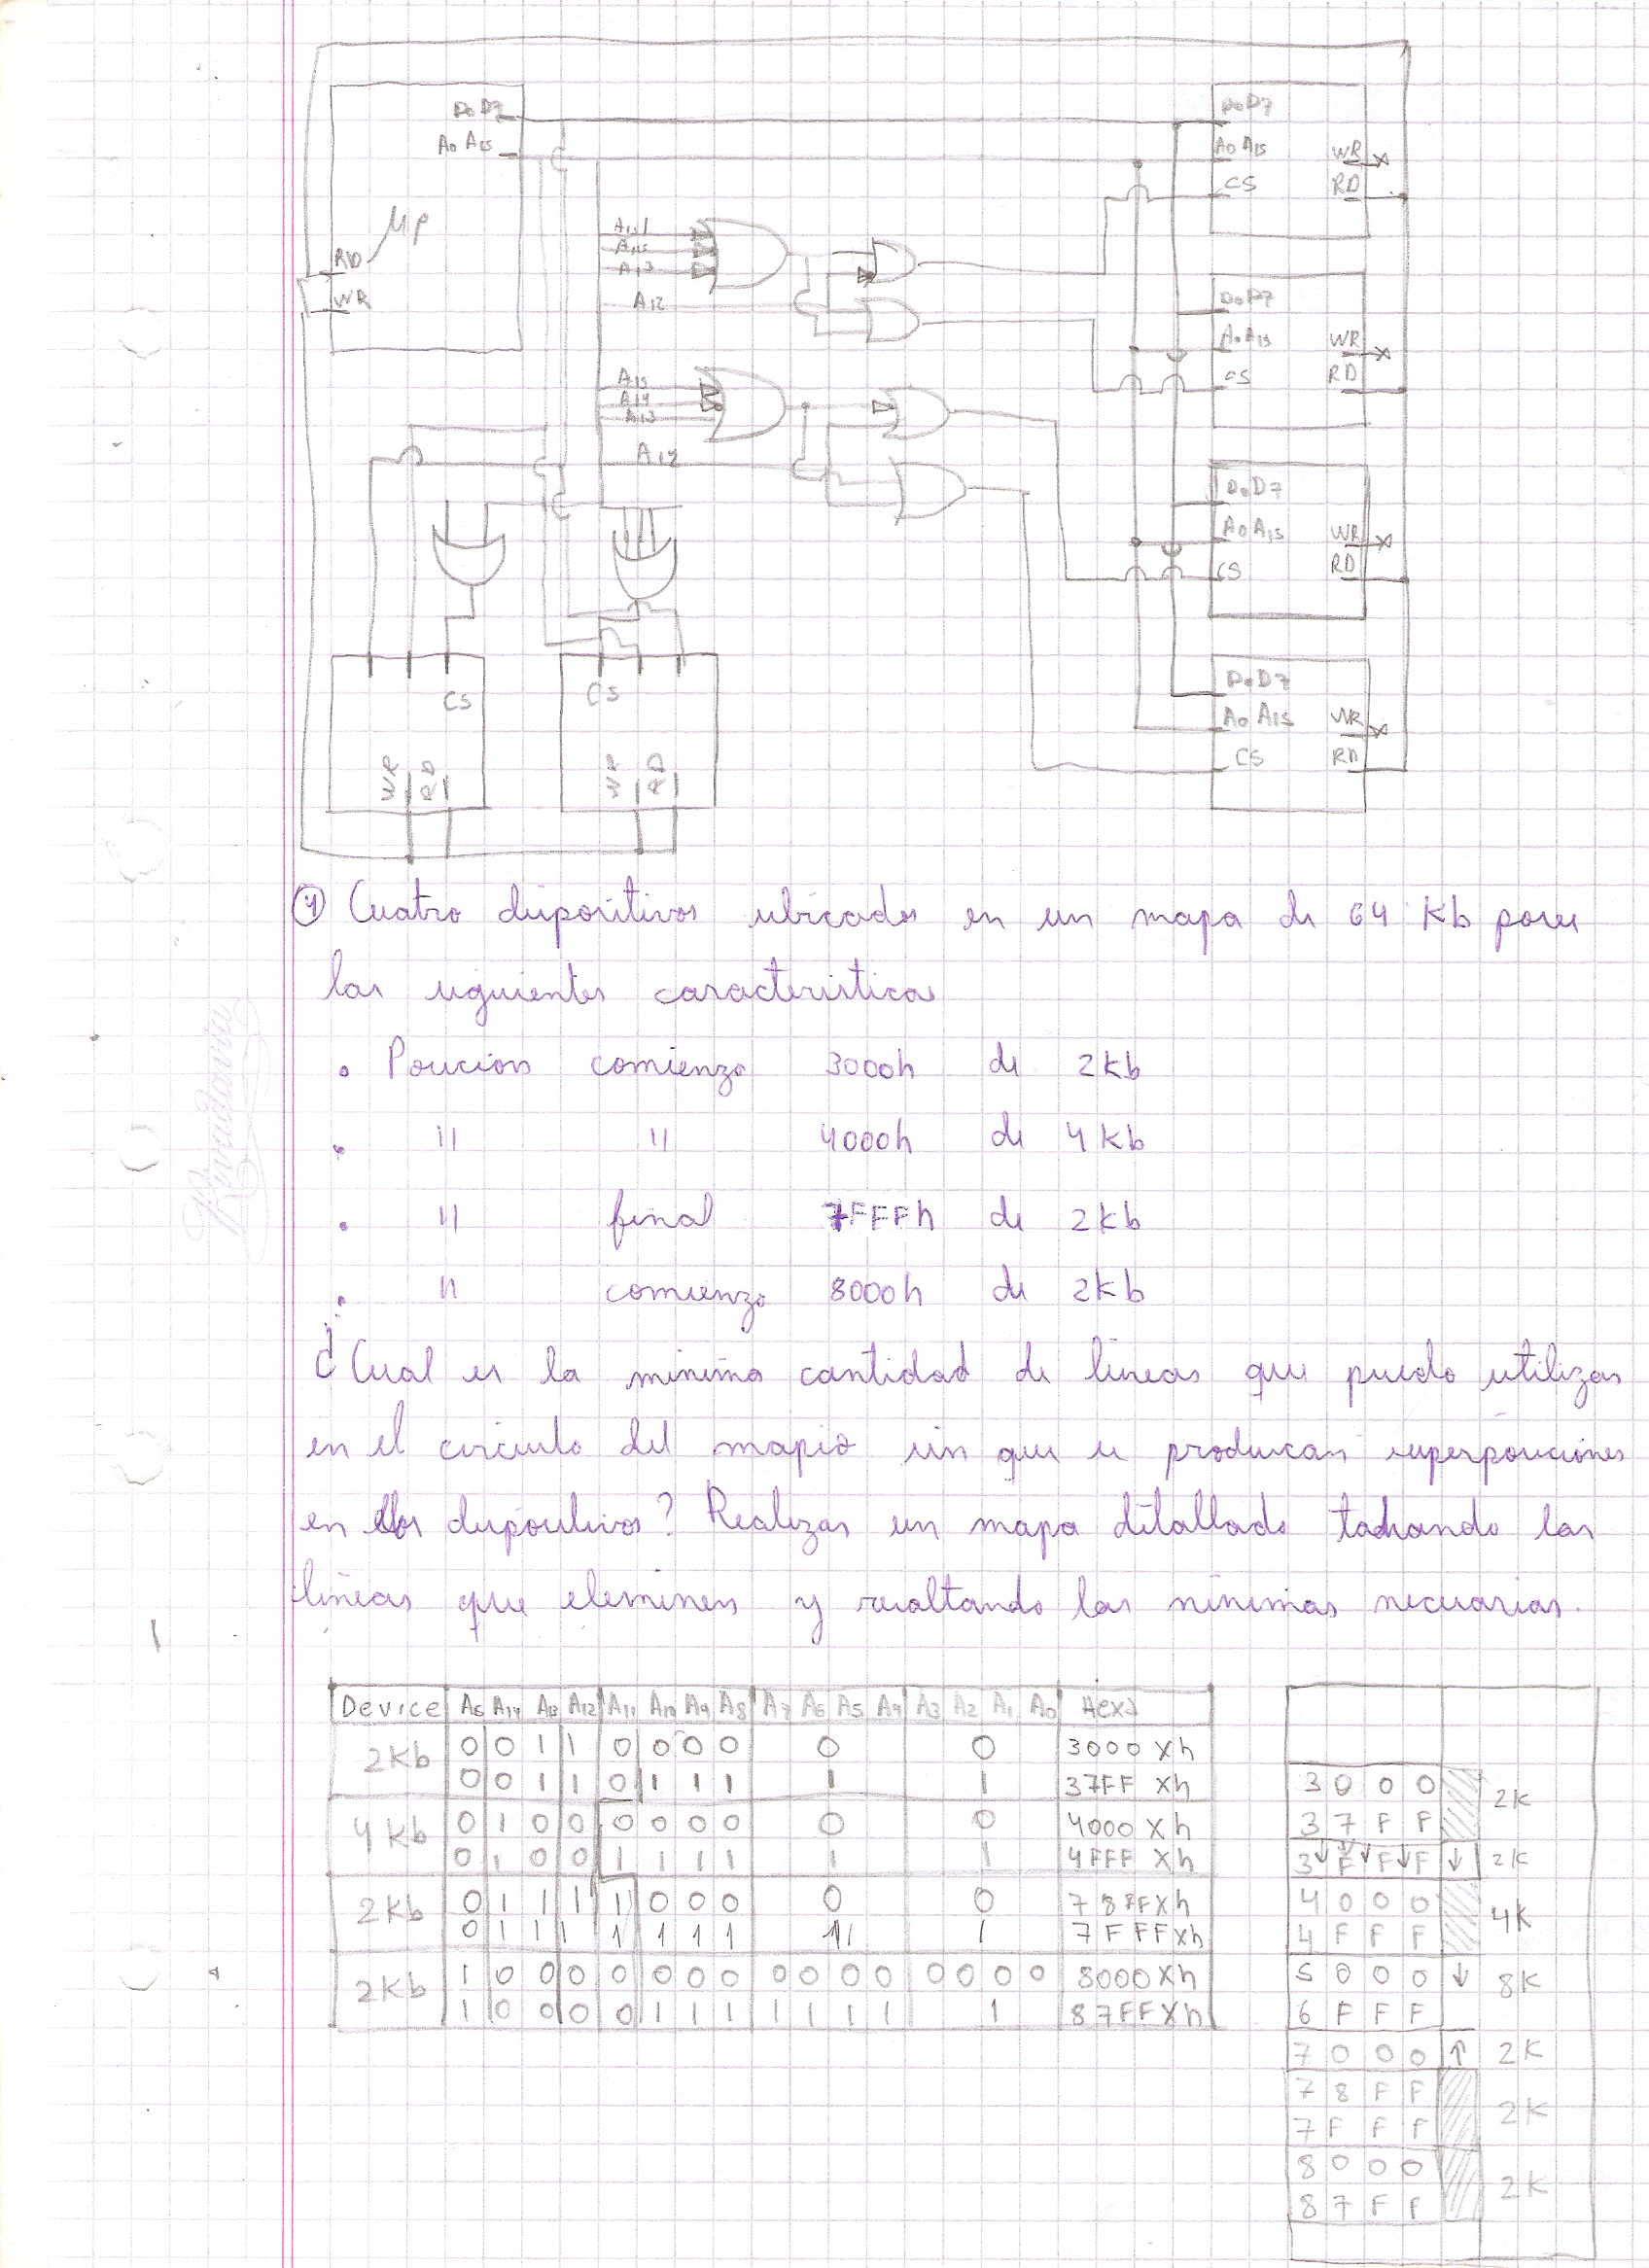 D0 D7
A0 A15
μP
RD
WR
A15
A14
A13
A12
A15
A14
A13
A12
D0 D7
A0 A15
CS
WR
RD
D0 D7
A0 A15
CS
WR
RD
D0 D7
A0 A15
CS
WR
RD
D0 D7
A0 A15
CS
WR
RD
CS
WR
RD
CS
WR
RD
Rivadavia
Cuatro dispositivos ubicados en un mapa de 64 Kb posee
las siguientes caracteristicas
• Posicion comienzo 3000h de 2kb
• " " 4000h de 4Kb
• " final 7FFFh de 2kb
• " comienzo 8000h de 2kb
¿Cual es la minima cantidad de lineas que puedo utilizar
en el circuito del mapeo sin que se produzcan superposiciones
en los dispositivos? Realizar un mapa detallado tachando las
lineas que eleminen y resaltando las minimas necesarias.
Device A15 A14 A13 A12 A11 A10 A9 A8 A7 A6 A5 A4 A3 A2 A1 A0 Hexa
2Kb 0 0 1 1 0 0 0 0 0 0 3000 Xh
0 0 1 1 0 1 1 1 1 1 37FF Xh
4Kb 0 1 0 0 0 0 0 0 0 0 4000 Xh
0 1 0 0 1 1 1 1 1 1 4FFF Xh
2Kb 0 1 1 1 1 0 0 0 0 0 78FFXh
0 1 1 1 1 1 1 1 1 1 7FFFXh
2Kb 1 0 0 0 0 0 0 0 0 0 0 0 0 0 0 0 8000Xh
1 0 0 0 0 1 1 1 1 1 1 1 1 87FFXh
3 0 0 0
3 7 F F 2K
3 F F F 2K
4 0 0 0
4 F F F 4K
5 0 0 0 8K
6 F F F
7 0 0 0 2K
7 8 F F
7 F F F 2K
8 0 0 0
8 7 F F 2K